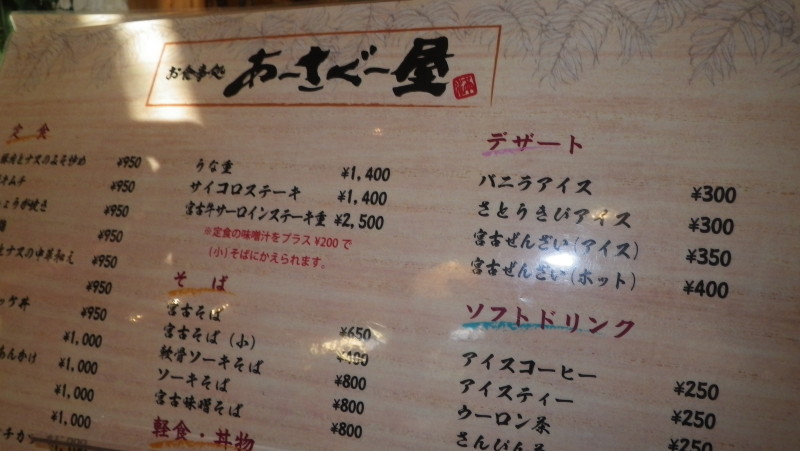 お食事処 あーさぐー屋
定食
豚肉とナスのみそ炒め ¥950
キムチ ¥950
しょうが焼き ¥950
¥950
とナスの中華和え ¥950
¥950
ッケ丼 ¥950
¥1,000
あんかけ ¥1,000
¥1,000
¥1,000
チカ
うな重 ¥1,400
サイコロステーキ ¥1,400
宮古牛サーロインステーキ重 ¥2,500
※定食の味噌汁をプラス¥200で
(小)そばにかえられます。
そば
宮古そば ¥650
宮古そば(小) ¥400
軟骨ソーキそば ¥800
ソーキそば ¥800
宮古味噌そば ¥800
軽食・丼物
デザート
バニラアイス ¥300
さとうきびアイス ¥300
宮古ぜんざい(アイス) ¥350
宮古ぜんざい(ホット) ¥400
ソフトドリンク
アイスコーヒー ¥250
アイスティー ¥250
ウーロン茶 ¥250
さんぴん茶